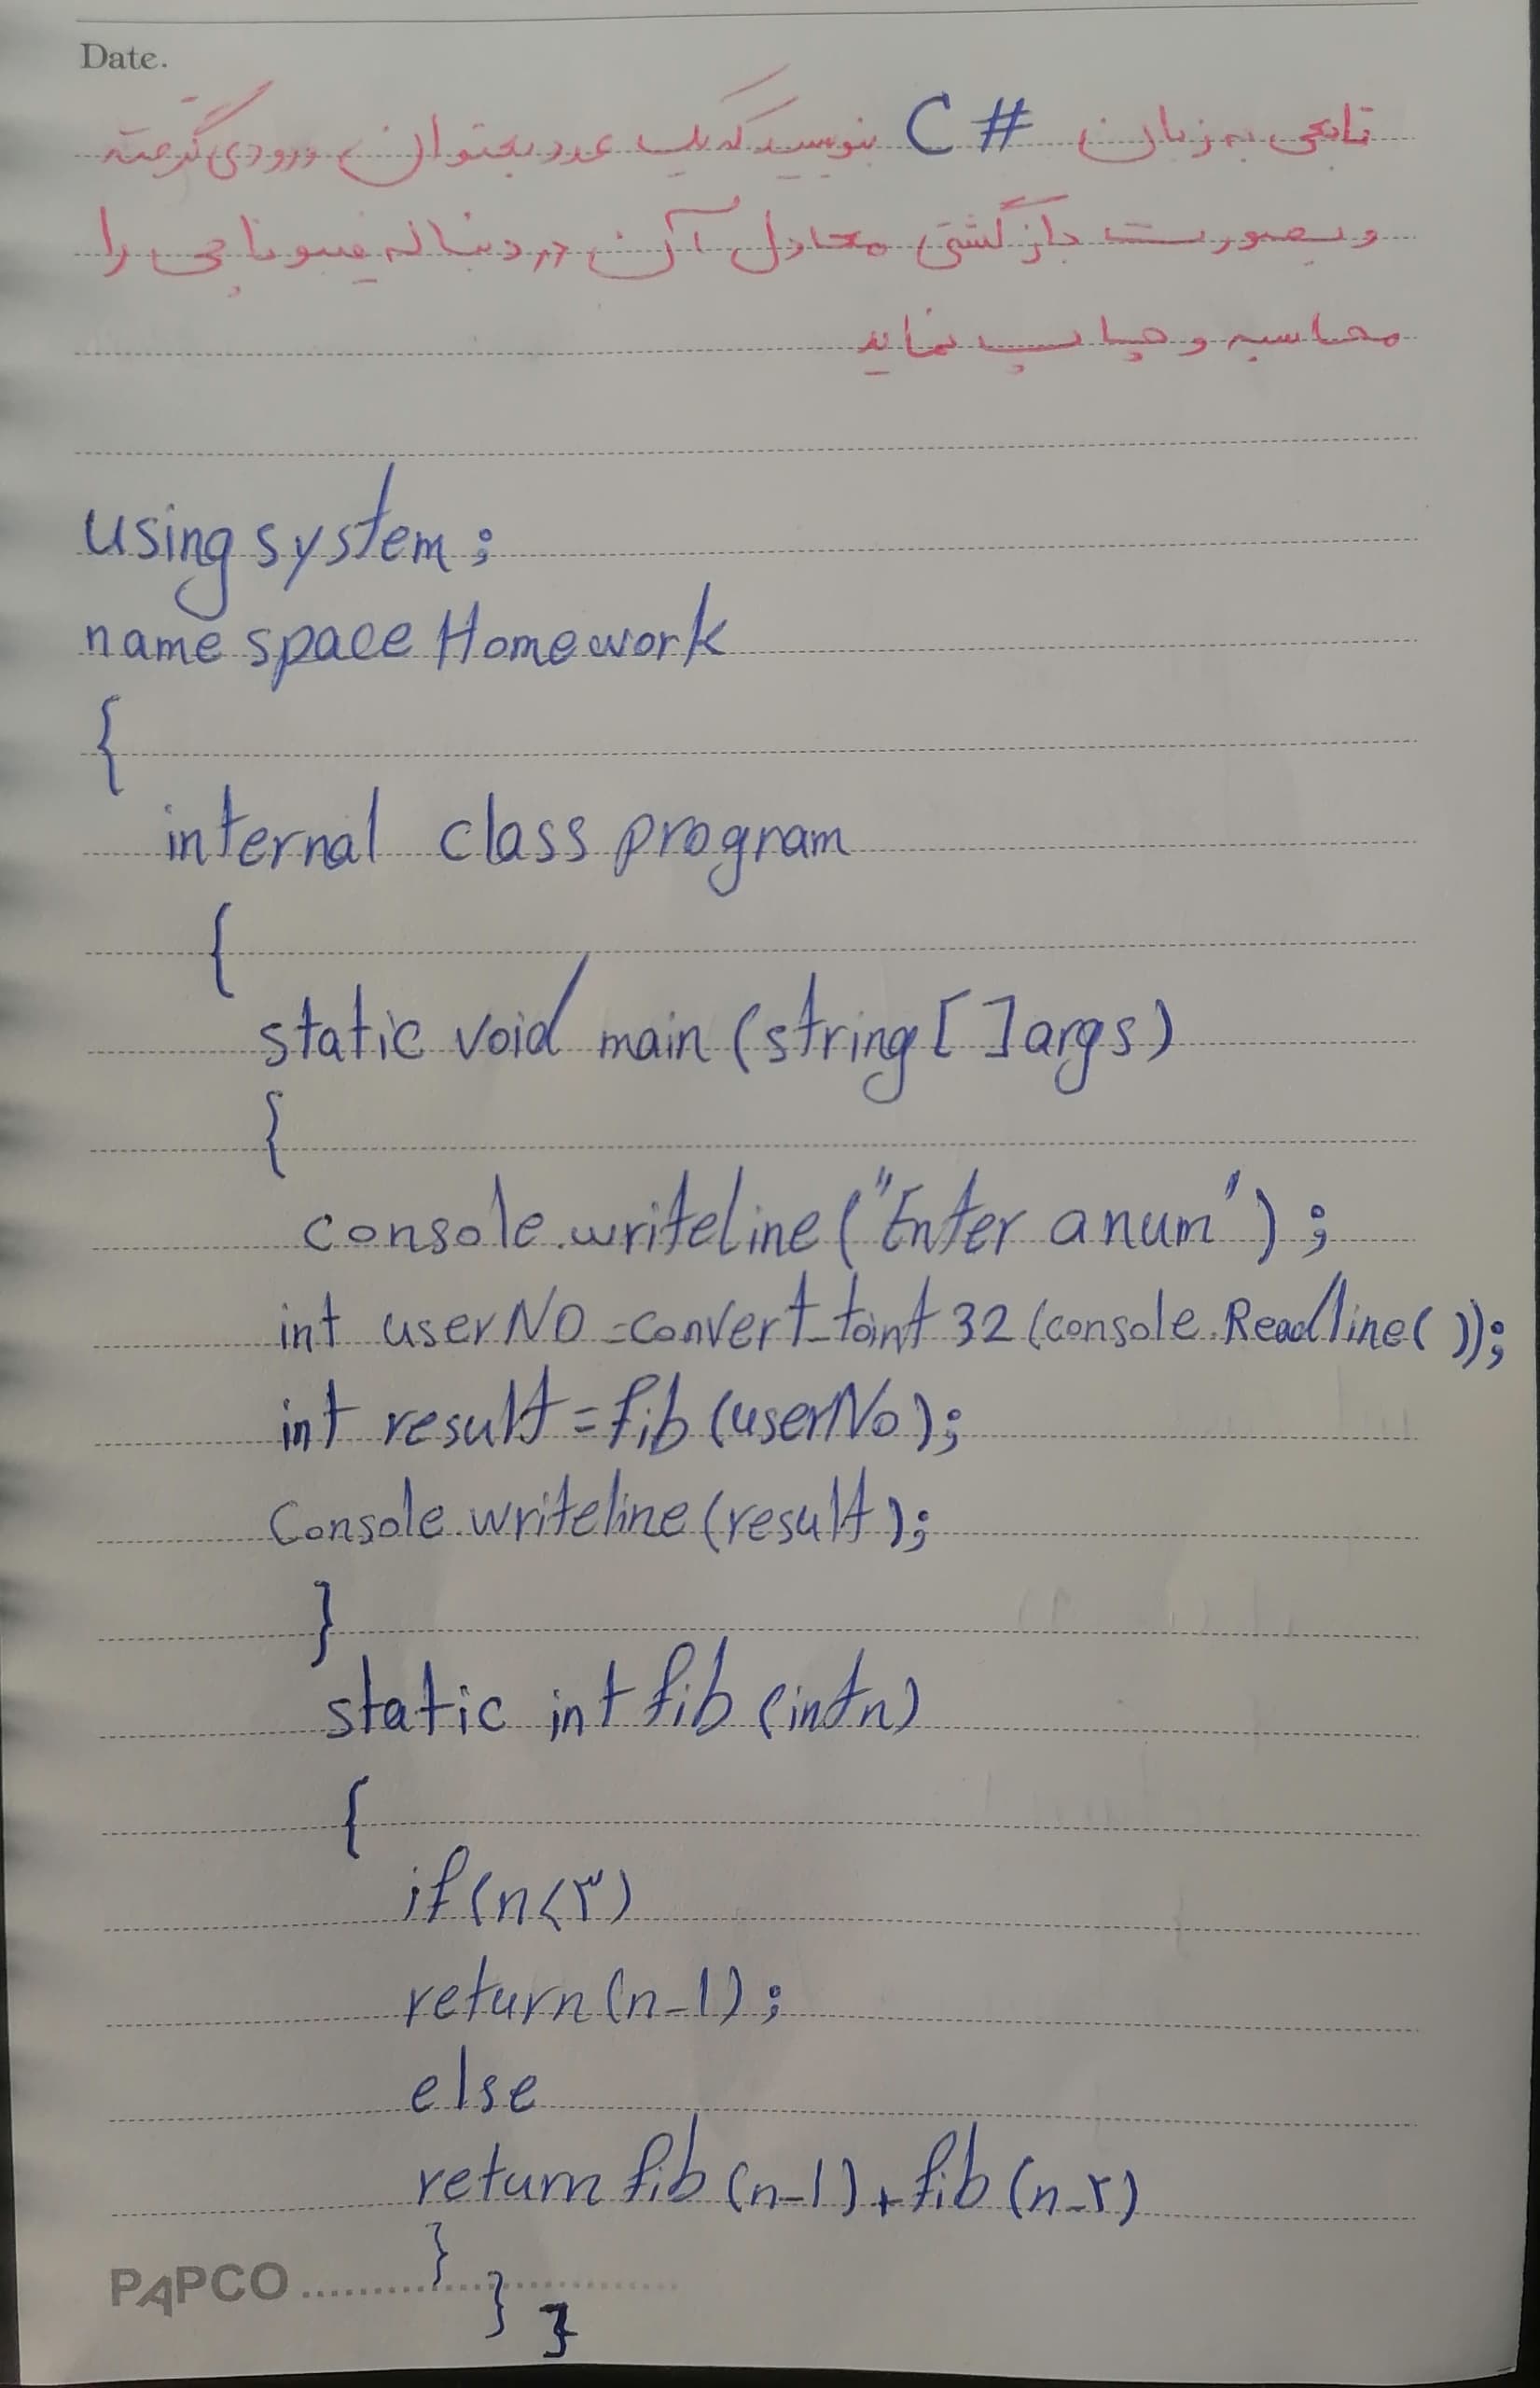 Date.
تابعی به زبان C# بنویسید که یک عدد بعنوان ورودی گرفته
و بصورت بازگشتی معادل آن در دنباله فیبوناچی را
محاسبه و چاپ نماید
using system;
name space Homework
{
internal class program
{
static void main (string [ ] args)
{
console.writeline ("Enter a num");
int userNO = convert_toint 32 (console.Readline( ));
int result = fib (userNo);
Console.writeline (result);
}
static int fib (int n)
{
if (n < ۳)
return (n-1);
else
return fib (n-1) + fib (n-۲)
}
PAPCO
}
}